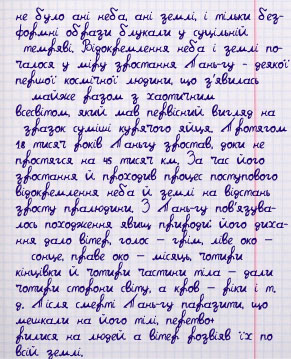 не було ані неба, ані землі, і тільки без-
формні образи блукали у суцільній
темряві. Відокремлення неба і землі по-
чалося у міру зростання Паньгу - деякої
першої космічної людини, що з'явилась
майже разом з хаотичним
всесвітом, який мав первісний вигляд на
зразок суміші курячого яйця. Протягом
18 тисяч років Паньгу зростав, доки не
простягся на 45 тисяч км. За час його
зростання й проходив процес поступового
відокремлення неба й землі на відстань
зросту пралюдини. З Паньгу пов'язува-
лось походження явищ природи: його диха-
ння дало вітер, голос – грім, ліве око –
сонце, праве око – місяць, чотири
кінцівки й чотири частини тіла – дали
чотири сторони світу, а кров – ріки і т.
д. Після смерті Паньгу паразити, що
мешкали на його тілі, перетво-
рилися на людей а вітер розвіяв їх по
всій землі.